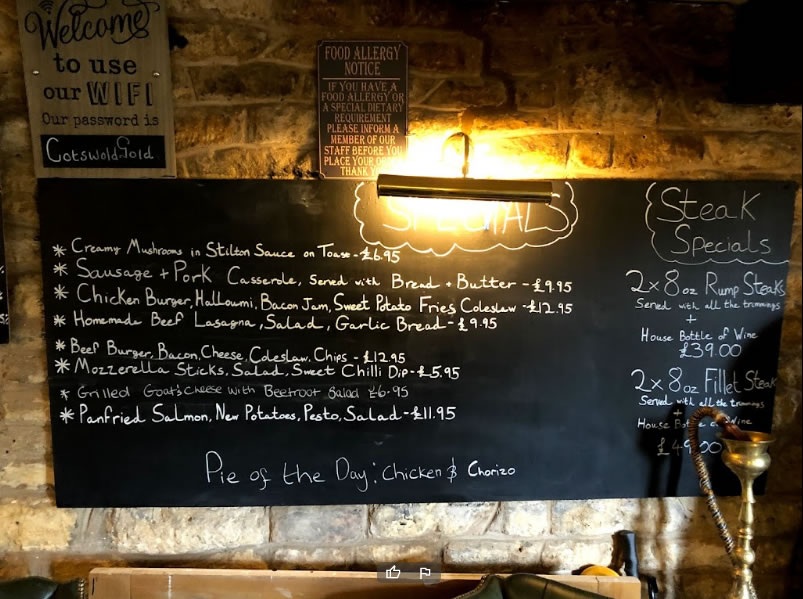 Welcome
to use
our WIFI
Our password is
CotswoldGold
FOOD ALLERGY
NOTICE
IF YOU HAVE A
FOOD ALLERGY OR
A SPECIAL DIETARY
REQUIREMENT
PLEASE INFORM A
MEMBER OF OUR
STAFF BEFORE YOU
PLACE YOUR
THANK
SPECIALS
* Creamy Mushrooms in Stilton Sauce on Toast - £6.95
* Sausage + Pork Casserole, Served with Bread + Butter - £9.95
* Chicken Burger, Halloumi, Bacon Jam, Sweet Potato Fries, Coleslaw - £12.95
* Homemade Beef Lasagna, Salad, Garlic Bread - £9.95
* Beef Burger, Bacon, Cheese, Coleslaw, Chips - £12.95
* Mozzerella Sticks, Salad, Sweet Chilli Dip - £5.95
* Grilled Goat's Cheese with Beetroot Salad £6.95
* Panfried Salmon, New Potatoes, Pesto, Salad - £11.95
Pie of the Day: Chicken & Chorizo
Steak
Specials
2 x 8oz Rump Steaks
Served with all the trimmings
+
House Bottle of Wine
£39.00
2 x 8oz Fillet Steak
Served with all the trimmings
+
House Bottle of Wine
£49.00